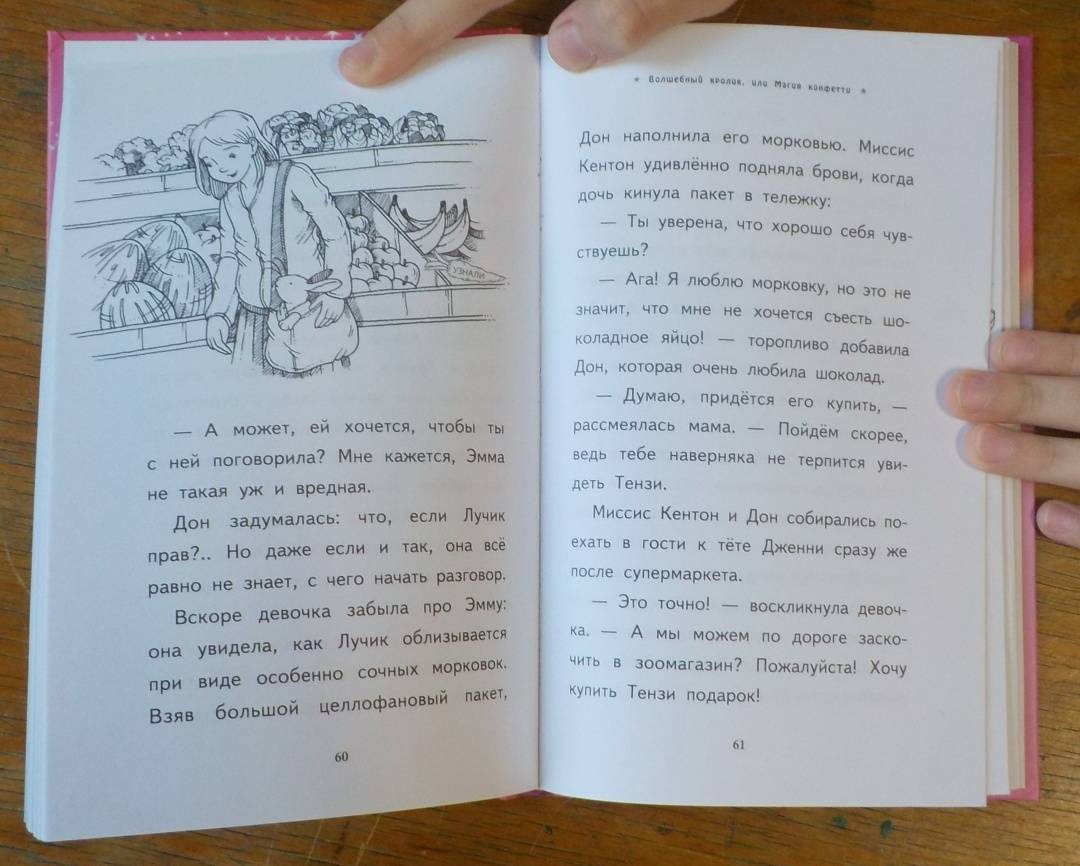 УЗНАЛИ
— А может, ей хочется, чтобы ты
с ней поговорила? Мне кажется, Эмма
не такая уж и вредная.
Дон задумалась: что, если Лучик
прав?.. Но даже если и так, она всё
равно не знает, с чего начать разговор.
Вскоре девочка забыла про Эмму:
она увидела, как Лучик облизывается
при виде особенно сочных морковок.
Взяв большой целлофановый пакет,
60
* Волшебный кролик, или Магия конфетти *
Дон наполнила его морковью. Миссис
Кентон удивлённо подняла брови, когда
дочь кинула пакет в тележку:
— Ты уверена, что хорошо себя чув-
ствуешь?
— Ага! Я люблю морковку, но это не
значит, что мне не хочется съесть шо-
коладное яйцо! — торопливо добавила
Дон, которая очень любила шоколад.
— Думаю, придётся его купить, —
рассмеялась мама. — Пойдём скорее,
ведь тебе наверняка не терпится уви-
деть Тензи.
Миссис Кентон и Дон собирались по-
ехать в гости к тёте Дженни сразу же
после супермаркета.
— Это точно! — воскликнула девоч-
ка. — А мы можем по дороге заско-
чить в зоомагазин? Пожалуйста! Хочу
купить Тензи подарок!
61